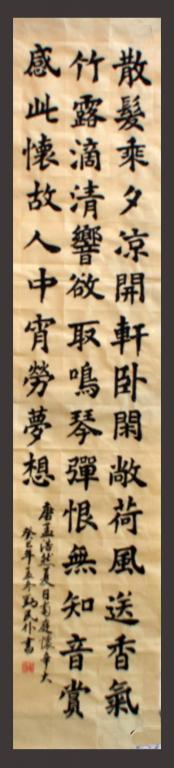 散髮乘夕涼開軒卧閑敞荷風送香氣
竹露滴清響欲取鳴琴彈恨無知音賞
感此懷故人中宵勞夢想
唐孟浩然夏日南庭懷辛大
癸巳年民作書